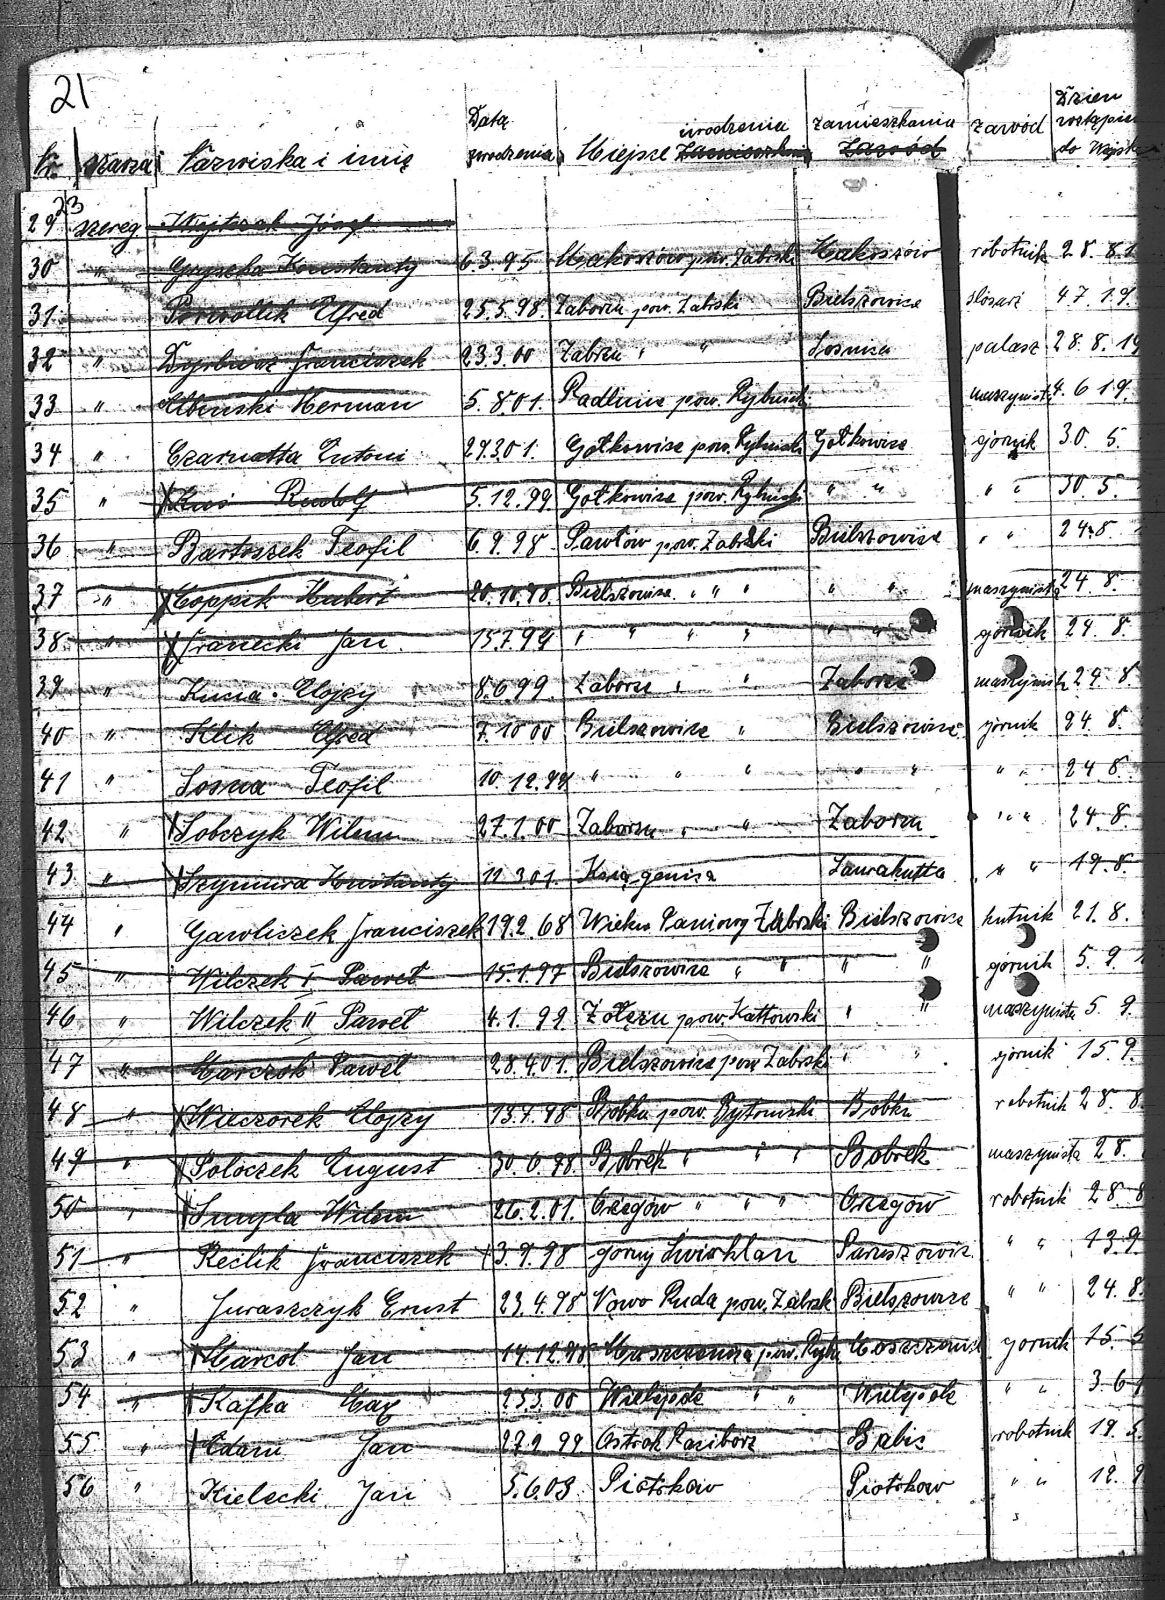 21
Nr. szarza Nazwiska i imię Datą urodzenia Miejsce urodzenia zamieszkania zawód Dzien wstąpien do Wojska
29 23 szereg Wojtczak Józef
30 " Konstanty 6.3.95 Makoszów pow. Zabrski Makoszów robotnik 28.8.1
31 25.5.98. Zaborze pow. Zabrski Bielszowice slosarz 4 7. 19.
32 " Franciszek 23.3.00 Zabrze " " Sosnica palasz 28.8.19
33 " Herman 5.8 01. Radlinie pow. Rybnicki maszynista 4. 6 19.
34 " Czarnotta Antoni 27.3.01. Gołkowice pow. Rybnicki Gołkowice górnik 30. 5.
35 " Rudolf 5.12.99 Gołkowice pow. Rybnicki " " " " 30 5.
36 " Bartoszek Teofil 6.9.98 Pawłów pow. Zabrski Bielszowice " " 24.8.
37 " Coppik Hubert 20.10.98. Bielszowice " " " " " maszynista 24 8.
38 " Franecki Jan. 15.7.99 " " " " " " górnik 24. 8.
39 " Kucia Alojzy 8.6.99. Zaborze " " Zaborze maszynista 24. 8
40 " Klik Alfred 7.10 00 Bielszowice " Bielszowice górnik 24 8.
41 " Sosna Teofil 10.12.99 " " " " " " " 24 8.
42 " Sobczyk Wilem 27.1.00 Zaborze " " Zaborze " " 24. 8.
43 " Szymura Konstanty 11 3 01. Laurahutta " " 19.8.
44 " Gawliczek Franciszek 19.2.68 Wiekw. Paniowy Zabrski Bielszowice hutnik 21.8.
45 " Wilczek I Paweł 15.1.97 Bielszowice " " " " górnik 5. 9
46 " Wilczek II Paweł 4.1.99. pow. Kattowski " " maszynista 5 9.
47 " Paweł 28.4.01. Bielszowice pow Zabrski " " górnik 15.9.
48 " Wieczorek Alojzy 13.7.98 pow. Bytomski robotnik 28. 8
49 " Poloczek August 30.6.98. Bobrek " " " Bobrek maszynista 28.
50 " Smyla Wilem 26.2.01. Orzegów " " " Orzegów robotnik 28 8
51 " Reclik Franciszek 3.9.98 gorny Paruszowic " " 13.9
52 " Juraszczyk Ernst 23.4.98 Nowo Ruda pow. Zabrsk Bielszowice " " 24.8.
53 " Marcol Jan 14.12.98 Moszczenica pow. Rybn Moszczenic gornik 15.5
54 " Kafka Max 25.3.00 Wielepole " " Wielepole " " 3 6
55 " Adam Jan 27.2 99 Ostrok Raciborz Babic robotnik 19. 5
56 " Kielecki Jan 5.6.03 Piotrkow Piotrkow " " 12. 9